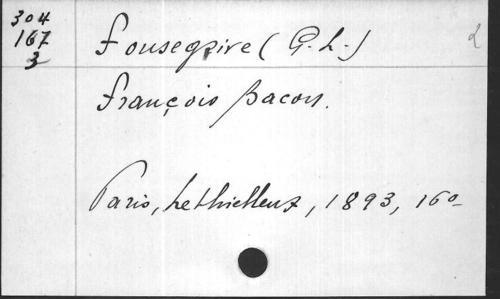 304
167
3
Fonsegrive (G. L.)
d
François Bacon.
Paris, Lethielleux, 1893, 16o